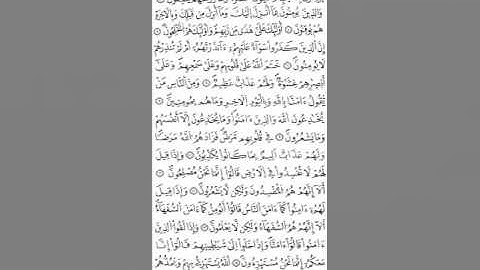 وَالَّذِينَ يُؤْمِنُونَ بِمَا أُنزِلَ إِلَيْكَ وَمَا أُنزِلَ مِن قَبْلِكَ وَبِالْآخِرَةِ
هُمْ يُوقِنُونَ ۝ أُولَٰئِكَ عَلَىٰ هُدًى مِّن رَّبِّهِمْ وَأُولَٰئِكَ هُمُ الْمُفْلِحُونَ ۝
إِنَّ الَّذِينَ كَفَرُوا سَوَاءٌ عَلَيْهِمْ ءَأَنذَرْتَهُمْ أَمْ لَمْ تُنذِرْهُمْ
لَا يُؤْمِنُونَ ۝ خَتَمَ اللَّهُ عَلَىٰ قُلُوبِهِمْ وَعَلَىٰ سَمْعِهِمْ وَعَلَىٰ
أَبْصَٰرِهِمْ غِشَٰوَةٌ وَلَهُمْ عَذَابٌ عَظِيمٌ ۝ وَمِنَ النَّاسِ مَن
يَقُولُ ءَامَنَّا بِاللَّهِ وَبِالْيَوْمِ الْآخِرِ وَمَا هُم بِمُؤْمِنِينَ ۝
يُخَٰدِعُونَ اللَّهَ وَالَّذِينَ ءَامَنُوا وَمَا يَخْدَعُونَ إِلَّا أَنفُسَهُمْ
وَمَا يَشْعُرُونَ ۝ فِي قُلُوبِهِم مَّرَضٌ فَزَادَهُمُ اللَّهُ مَرَضًا
وَلَهُمْ عَذَابٌ أَلِيمٌ بِمَا كَانُوا يَكْذِبُونَ ۝ وَإِذَا قِيلَ
لَهُمْ لَا تُفْسِدُوا فِي الْأَرْضِ قَالُوا إِنَّمَا نَحْنُ مُصْلِحُونَ ۝
أَلَا إِنَّهُمْ هُمُ الْمُفْسِدُونَ وَلَٰكِن لَّا يَشْعُرُونَ ۝ وَإِذَا قِيلَ
لَهُمْ ءَامِنُوا كَمَا ءَامَنَ النَّاسُ قَالُوا أَنُؤْمِنُ كَمَا ءَامَنَ السُّفَهَاءُ
أَلَا إِنَّهُمْ هُمُ السُّفَهَاءُ وَلَٰكِن لَّا يَعْلَمُونَ ۝ وَإِذَا لَقُوا الَّذِينَ
ءَامَنُوا قَالُوا ءَامَنَّا وَإِذَا خَلَوْا إِلَىٰ شَيَٰطِينِهِمْ قَالُوا إِنَّا
مَعَكُمْ إِنَّمَا نَحْنُ مُسْتَهْزِءُونَ ۝ اللَّهُ يَسْتَهْزِئُ بِهِمْ وَيَمُدُّهُمْ